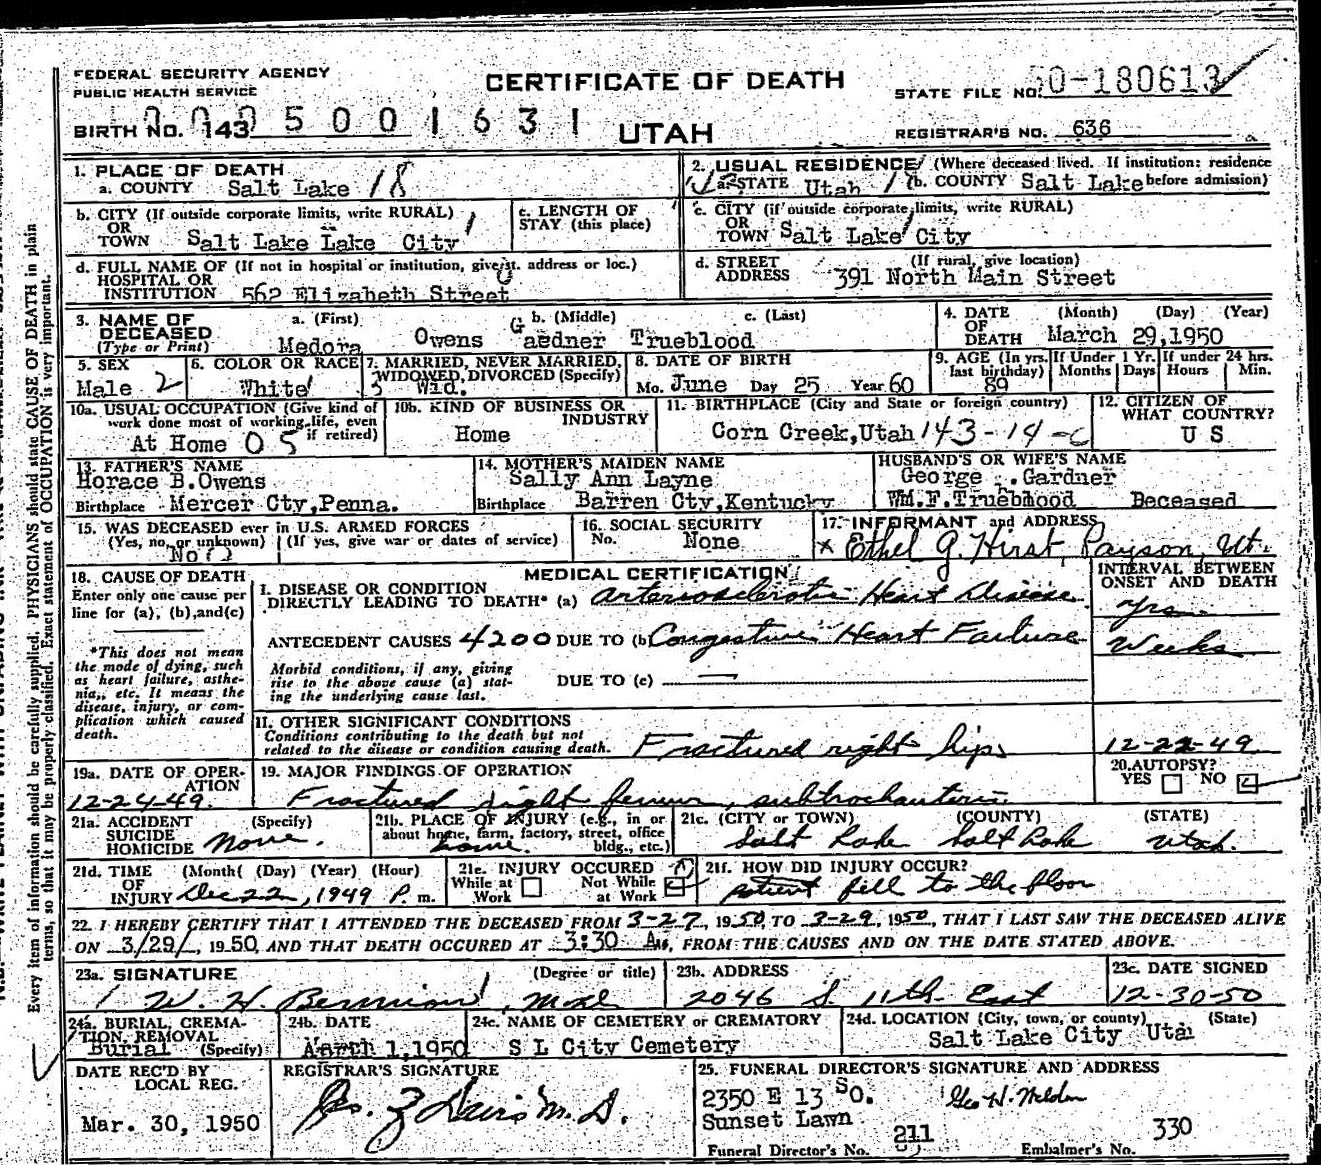 FEDERAL SECURITY AGENCY
PUBLIC HEALTH SERVICE
CERTIFICATE OF DEATH
STATE FILE NO. 50-180613
BIRTH NO. 143 5 0 0 1 6 3 1
UTAH
REGISTRAR'S NO. 636
1. PLACE OF DEATH
a. COUNTY Salt Lake 18
2. USUAL RESIDENCE (Where deceased lived. If institution: residence before admission)
a. STATE Utah b. COUNTY Salt Lake
b. CITY (If outside corporate limits, write RURAL)
OR TOWN Salt Lake Lake City
c. LENGTH OF STAY (this place)
c. CITY (if outside corporate limits, write RURAL)
OR TOWN Salt Lake City
d. FULL NAME OF (If not in hospital or institution, give st. address or loc.)
HOSPITAL OR INSTITUTION 562 Elizabeth Street
d. STREET ADDRESS (If rural, give location)
391 North Main Street
3. NAME OF DECEASED (Type or Print)
a. (First) b. (Middle) c. (Last)
Medora Owens Gaedner Trueblood
4. DATE OF DEATH (Month) (Day) (Year)
March 29,1950
5. SEX
Male 2
6. COLOR OR RACE
White
7. MARRIED, NEVER MARRIED, WIDOWED, DIVORCED (Specify)
3 Wid.
8. DATE OF BIRTH
Mo. June Day 25 Year 60
9. AGE (In yrs. last birthday) 89
If Under 1 Yr. Months Days
If under 24 hrs. Hours Min.
10a. USUAL OCCUPATION (Give kind of work done most of working life, even if retired)
At Home 0 5
10b. KIND OF BUSINESS OR INDUSTRY
Home
11. BIRTHPLACE (City and State or foreign country)
Corn Creek,Utah 143-14-c
12. CITIZEN OF WHAT COUNTRY?
U S
13. FATHER'S NAME
Horace B.Owens
Birthplace Mercer Cty,Penna.
14. MOTHER'S MAIDEN NAME
Sally Ann Layne
Birthplace Barren Cty,Kentucky
HUSBAND'S OR WIFE'S NAME
George . Gardner
WM.F.Truebmood Deceased
15. WAS DECEASED ever in U.S. ARMED FORCES
(Yes, no, or unknown) (If yes, give war or dates of service)
No
16. SOCIAL SECURITY No.
None
17. INFORMANT and ADDRESS
x Ethel G. Hirst, Payson, Ut.
18. CAUSE OF DEATH
Enter only one cause per line for (a), (b), and(c)
*This does not mean the mode of dying, such as heart failure, asthenia, etc. It means the disease, injury, or complication which caused death.
MEDICAL CERTIFICATION
INTERVAL BETWEEN ONSET AND DEATH
I. DISEASE OR CONDITION DIRECTLY LEADING TO DEATH* (a) Arteriosclerotic Heart Disease yrs.
ANTECEDENT CAUSES 4200 DUE TO (b) Congestive Heart Failure Weeks
Morbid conditions, if any, giving rise to the above cause (a) stating the underlying cause last.
DUE TO (c)
II. OTHER SIGNIFICANT CONDITIONS
Conditions contributing to the death but not related to the disease or condition causing death.
Fractured right hip 12-22-49
19a. DATE OF OPERATION
12-24-49.
19. MAJOR FINDINGS OF OPERATION
Fractured right femur, subtrochanteric
20. AUTOPSY?
YES NO
21a. ACCIDENT SUICIDE HOMICIDE (Specify)
none.
21b. PLACE OF INJURY (e.g., in or about home, farm, factory, street, office bldg., etc.)
home.
21c. (CITY or TOWN) (COUNTY) (STATE)
Salt Lake Salt Lake Utah.
21d. TIME OF INJURY (Month) (Day) (Year) (Hour)
Dec 22, 1949 P. m.
21e. INJURY OCCURED
While at Work Not While at Work
21f. HOW DID INJURY OCCUR?
patient fell to the floor
22. I HEREBY CERTIFY THAT I ATTENDED THE DECEASED FROM 3-27, 1950, TO 3-29, 1950, THAT I LAST SAW THE DECEASED ALIVE
ON 3/29/, 1950, AND THAT DEATH OCCURED AT 3:30 A M, FROM THE CAUSES AND ON THE DATE STATED ABOVE.
23a. SIGNATURE (Degree or title)
23b. ADDRESS
2046 S. 11th East
23c. DATE SIGNED
12-30-50
24a. BURIAL, CREMATION, REMOVAL (Specify)
Burial
24b. DATE
April 1,1950
24c. NAME OF CEMETERY or CREMATORY
S L City Cemetery
24d. LOCATION (City, town, or county) (State)
Salt Lake City Utah
DATE REC'D BY LOCAL REG.
Mar. 30, 1950
REGISTRAR'S SIGNATURE
25. FUNERAL DIRECTOR'S SIGNATURE AND ADDRESS
2350 E 13 So.
Sunset Lawn
Funeral Director's No. 211
Embalmer's No. 330
Every item of information should be carefully supplied. PHYSICIANS should state CAUSE OF DEATH in plain
terms, so that it may be properly classified. Exact statement of OCCUPATION is very important.